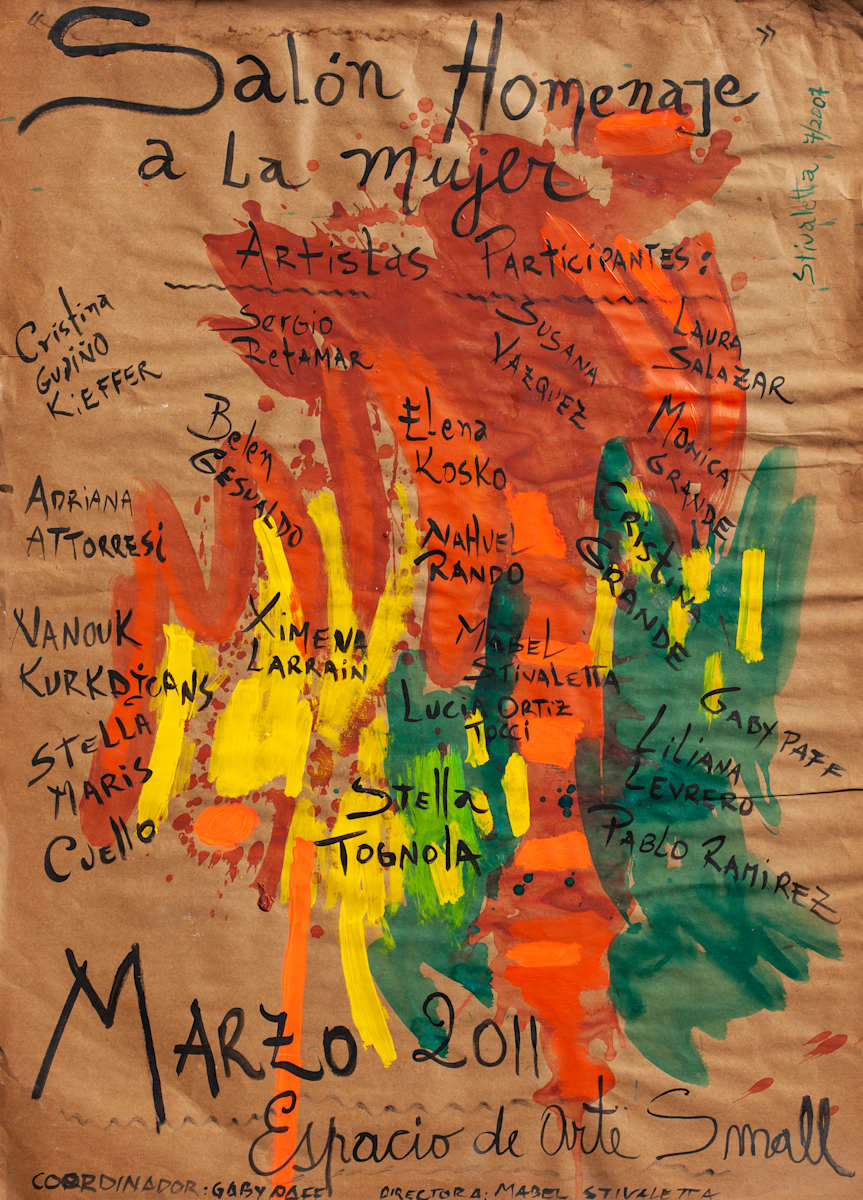 "Salón Homenaje"
a La mujer
Stivaletta 7/2007
Artistas Participantes:
Cristina
GUDIÑO
KiEFFER
Sergio
RETAMAR
SUSANA
VAZQUEZ
LAURA
SALAZAR
Belen
GESUALDO
Elena
KOSKO
MONICA
GRANDE
ADRIANA
ATTORRESi
NAHUEL
RANDO
CRISTINA
GRANDE
VANOUK
KURKDYCANS
XIMENA
LARRAIN
MABEL
STIVALETTA
LUCIA ORTIZ
TOCCI
GABY PAFF
STELLA
MARIS
CUELLO
LILIANA
LEVRERO
STELLA
TOGNOLA
PABLO RAMIREZ
MARZO 2011
Espacio de arte Small
COORDINADOR: GABY PAFF DIRECTORA: MABEL STIVALETTA